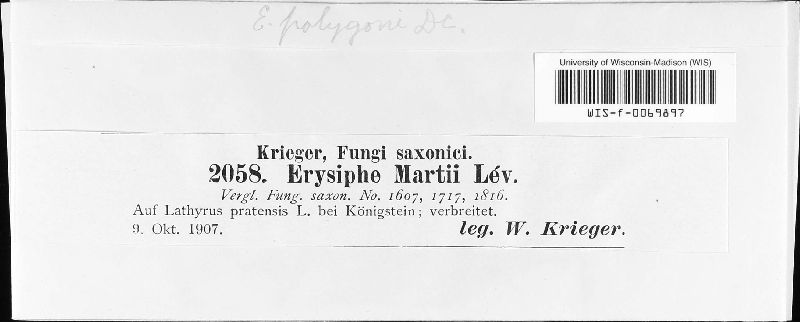 E. polygoni DC.
University of Wisconsin-Madison (WIS)
WIS-f-0069897
Krieger, Fungi saxonici.
2058. Erysiphe Martii Lév.
Vergl. Fung. saxon. No. 1607, 1717, 1816.
Auf Lathyrus pratensis L. bei Königstein; verbreitet.
9. Okt. 1907. leg. W. Krieger.